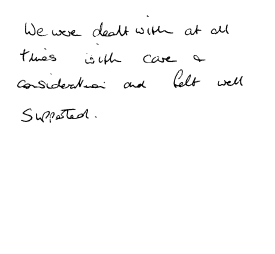 We were dealt with at all
times with care &
consideration and felt well
supported.